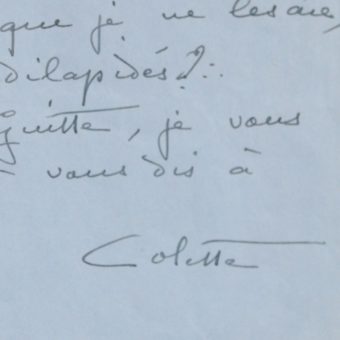 que je ne les aie,
dilapidés ?..
guitte, je vous
vous dis à
Colette